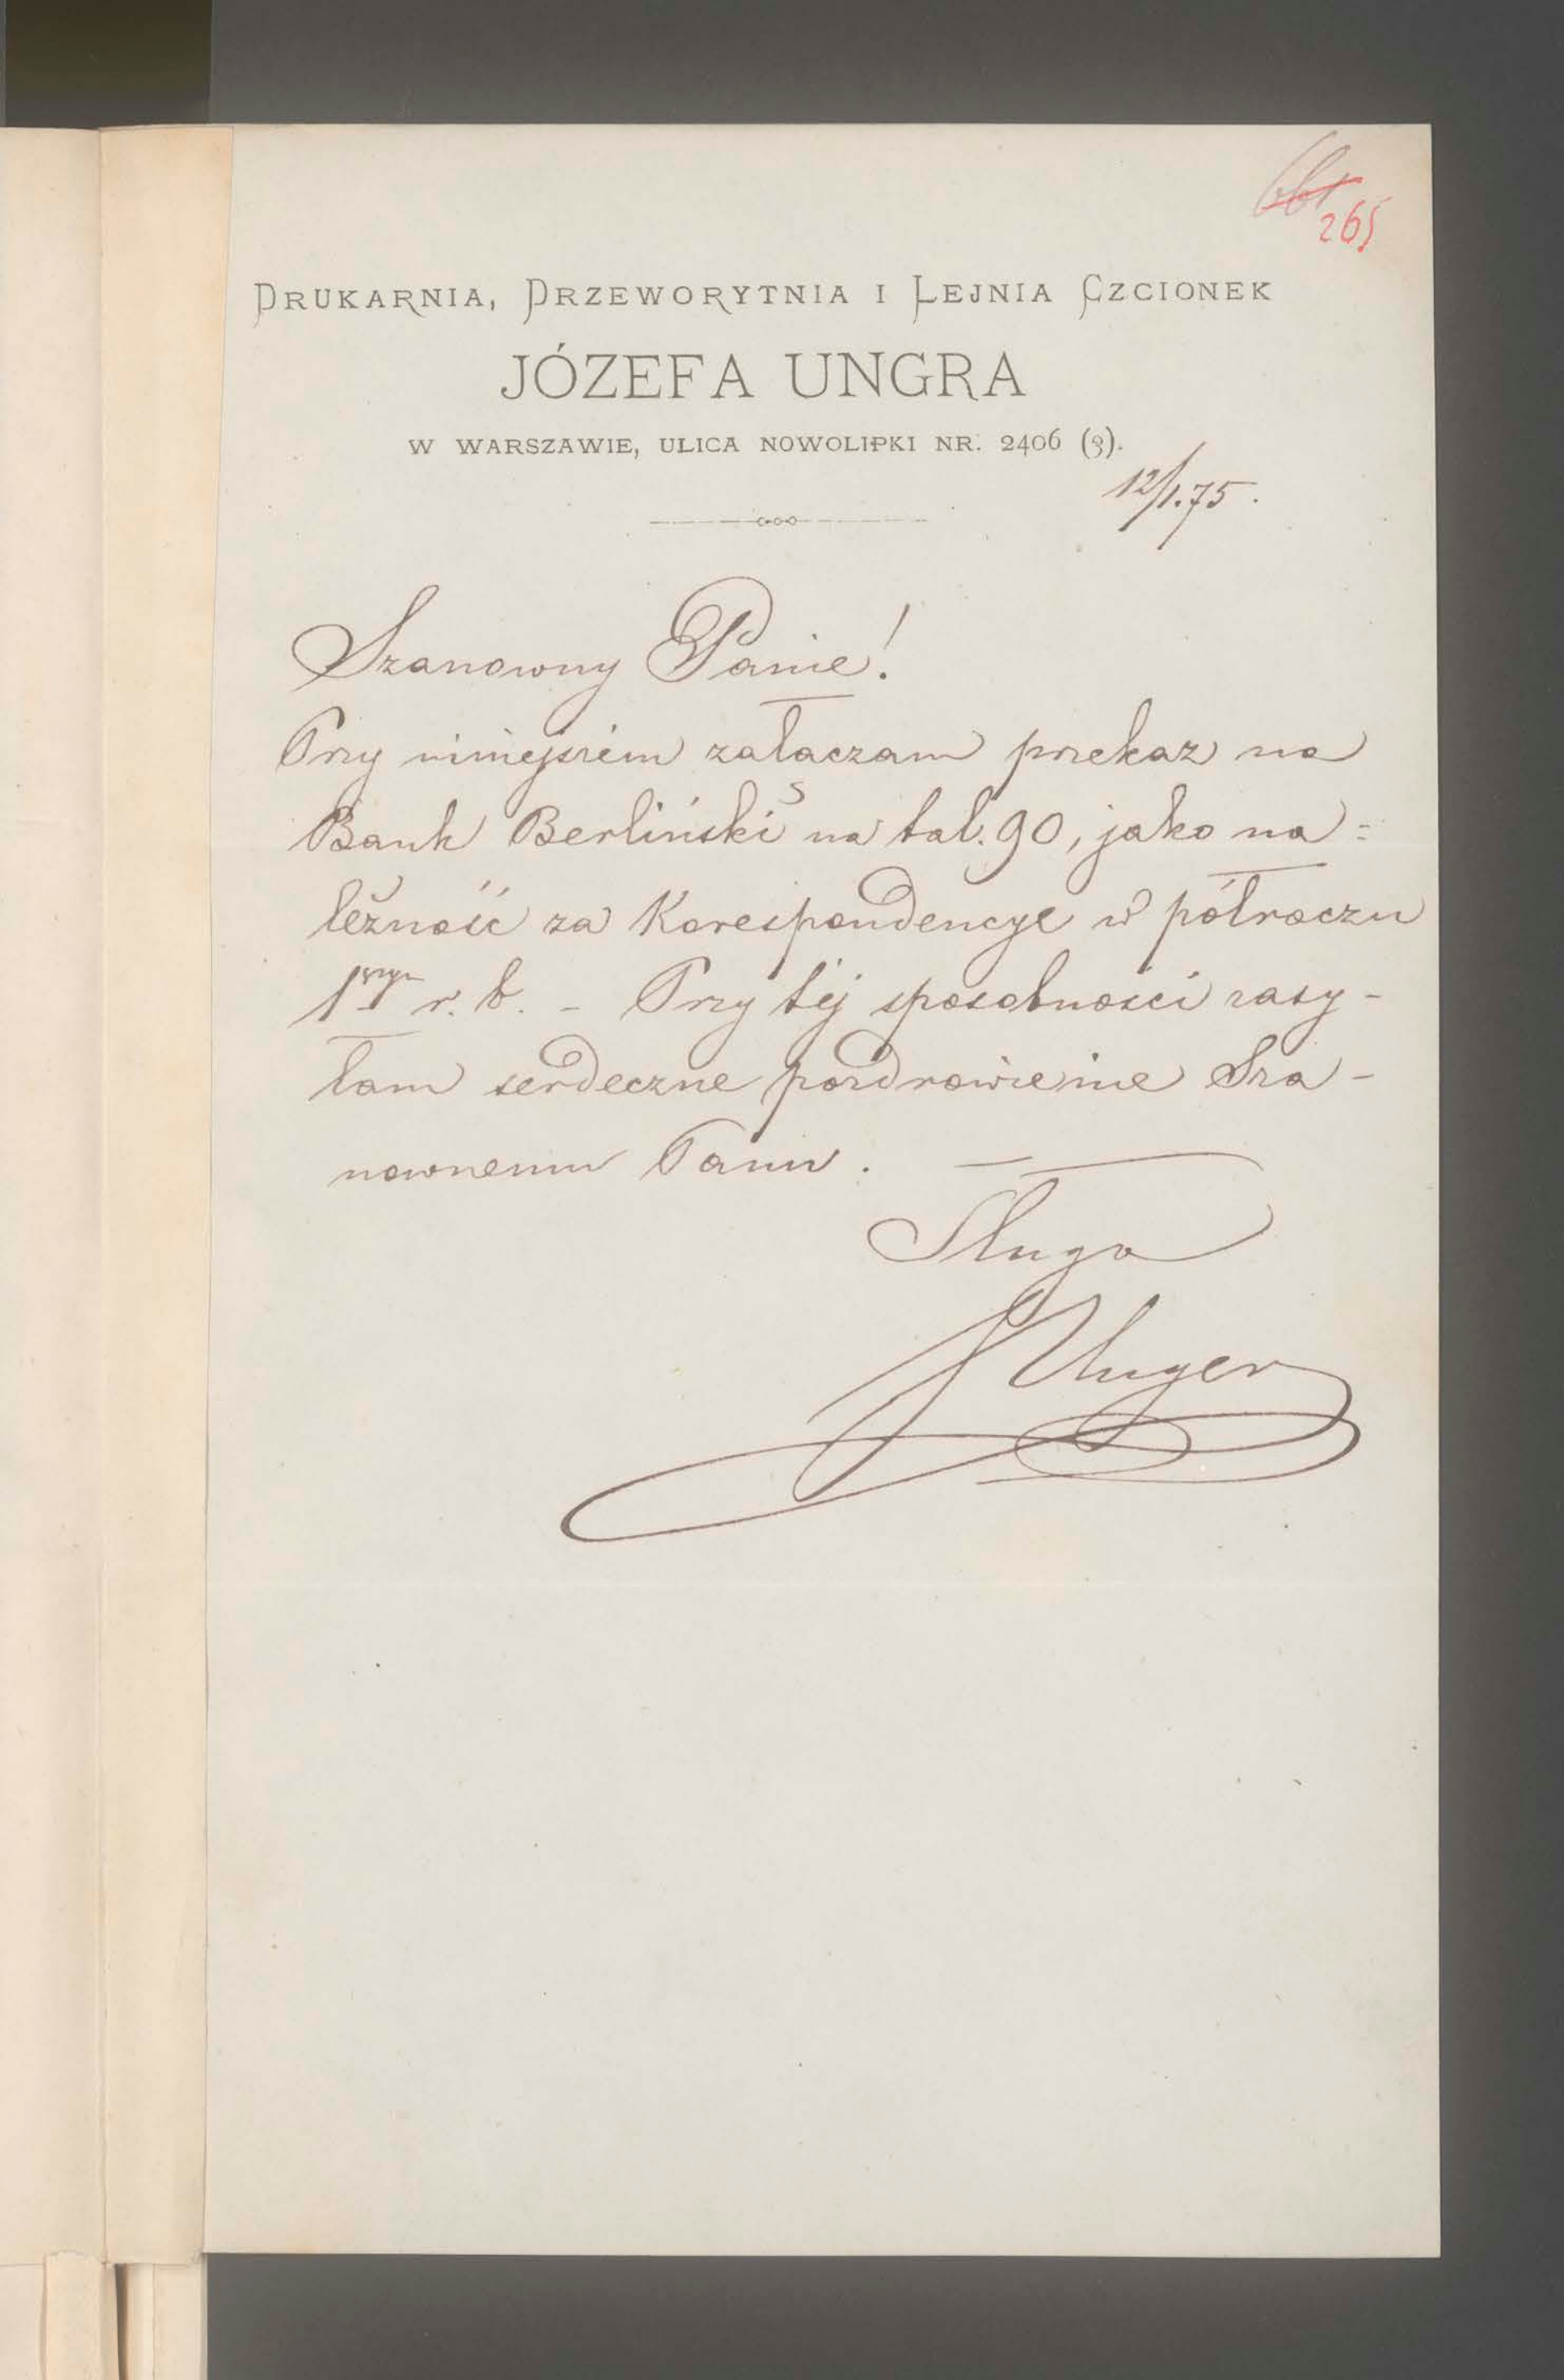 265
DRUKARNIA, DRZEWORYTNIA I LEJNIA CZCIONEK
JÓZEFA UNGRA
W WARSZAWIE, ULICA NOWOLIPKI NR. 2406 (3).
12/1.75.
Szanowny Panie!
Przy niniejszem załaczam przekaz na
Bank Berliński na tal. 90, jako na=
leżność za Korespondencye w półroczu
1szym r. b. – Przy tej sposobności zasy-
łam serdeczne pozdrowienie Sza-
nownemu Panu. —
Sługa
J Unger